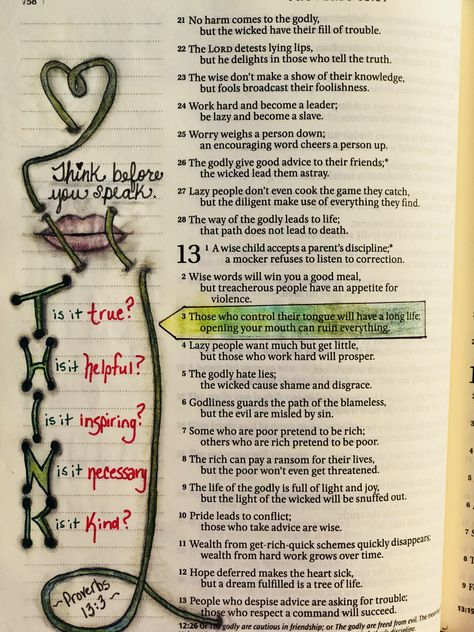 758
Think before
you speak.
T is it true?
H is it helpful?
I is it inspiring?
N is it necessary
K is it kind?
~ Proverbs
13:3 ~
21 No harm comes to the godly,
but the wicked have their fill of trouble.
22 The LORD detests lying lips,
but he delights in those who tell the truth.
23 The wise don't make a show of their knowledge,
but fools broadcast their foolishness.
24 Work hard and become a leader;
be lazy and become a slave.
25 Worry weighs a person down;
an encouraging word cheers a person up.
26 The godly give good advice to their friends;*
the wicked lead them astray.
27 Lazy people don't even cook the game they catch,
but the diligent make use of everything they find.
28 The way of the godly leads to life;
that path does not lead to death.
13 1 A wise child accepts a parent's discipline;*
a mocker refuses to listen to correction.
2 Wise words will win you a good meal,
but treacherous people have an appetite for
violence.
3 Those who control their tongue will have a long life;
opening your mouth can ruin everything.
4 Lazy people want much but get little,
but those who work hard will prosper.
5 The godly hate lies;
the wicked cause shame and disgrace.
6 Godliness guards the path of the blameless,
but the evil are misled by sin.
7 Some who are poor pretend to be rich;
others who are rich pretend to be poor.
8 The rich can pay a ransom for their lives,
but the poor won't even get threatened.
9 The life of the godly is full of light and joy,
but the light of the wicked will be snuffed out.
10 Pride leads to conflict;
those who take advice are wise.
11 Wealth from get-rich-quick schemes quickly disappears;
wealth from hard work grows over time.
12 Hope deferred makes the heart sick,
but a dream fulfilled is a tree of life.
13 People who despise advice are asking for trouble;
those who respect a command will succeed.
12:26 Or The godly are cautious in friendship; or The godly are freed from evil. The
discipline.